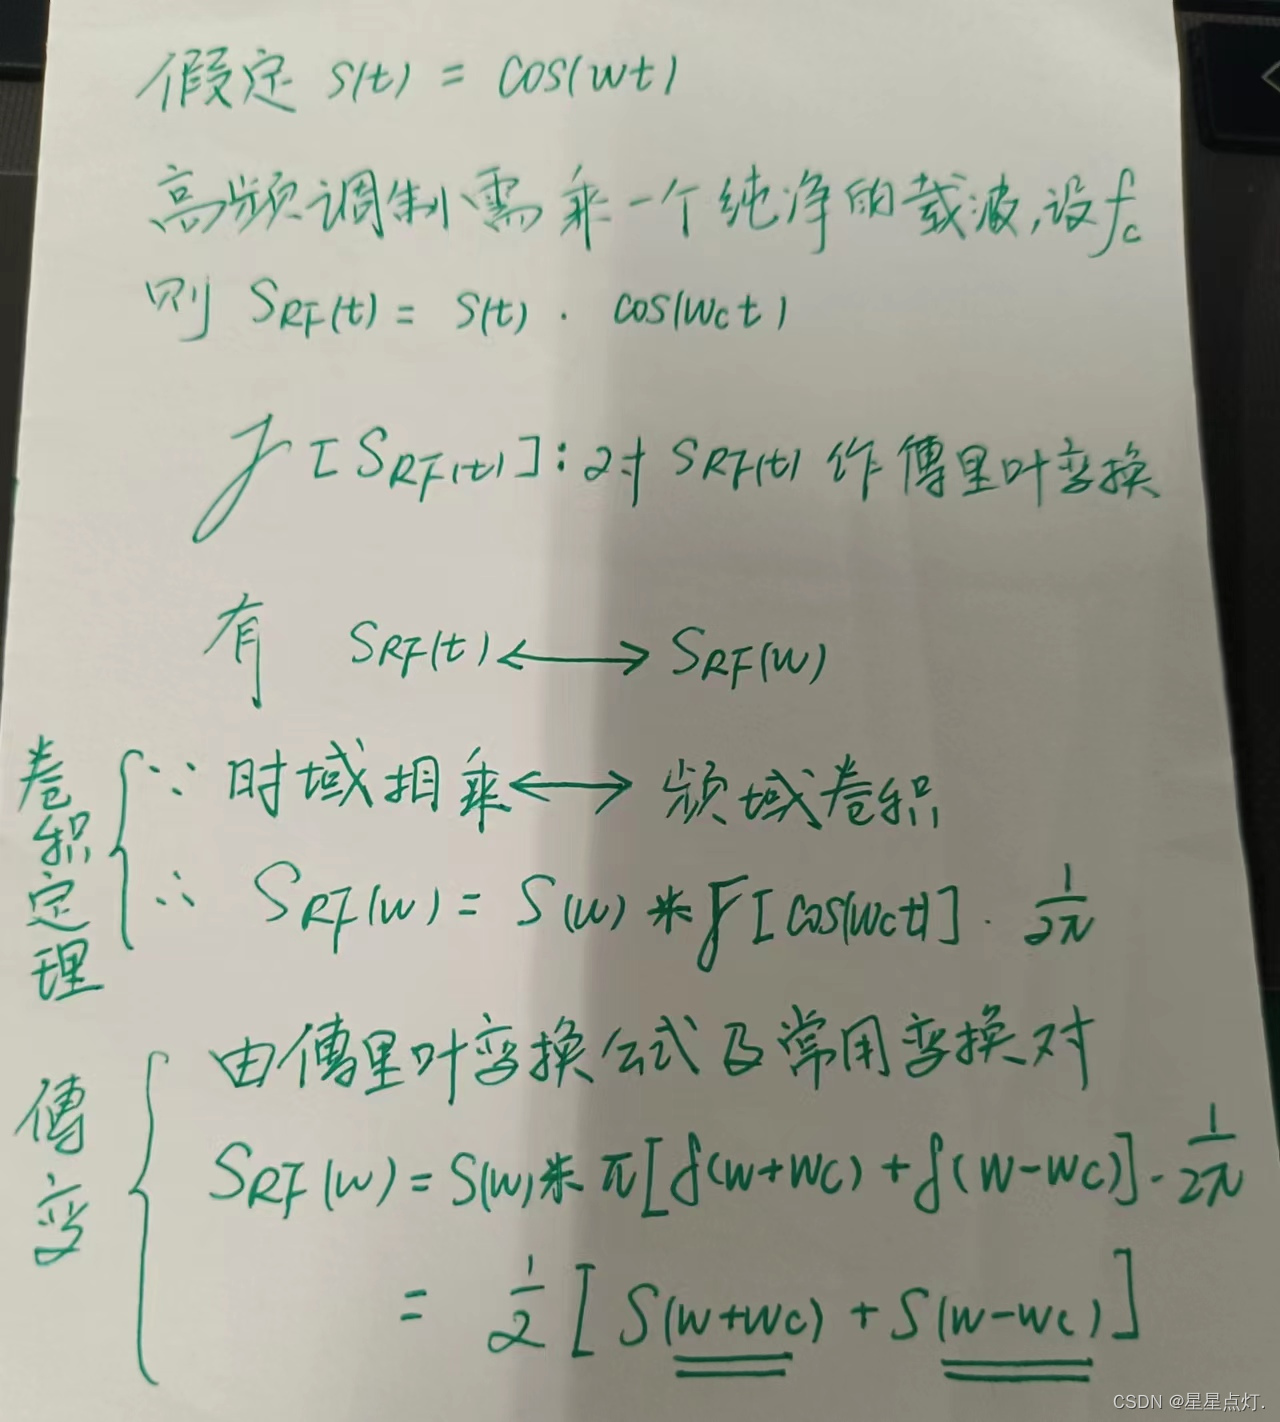 假定 S(t) = cos(wt)
高频调制需乘一个纯净的载波,设fc
则 SRF(t) = S(t) · cos(wct)
F[SRF(t)]:对 SRF(t) 作傅里叶变换
有 SRF(t) ⟷ SRF(w)
卷积定理
∵ 时域相乘 ⟷ 频域卷积
∴ SRF(w) = S(w) * F[cos(wct)] · 1/2π
傅变
由傅里叶变换公式及常用变换对
SRF(w) = S(w) * π[δ(w+wc) + δ(w-wc)] · 1/2π
= 1/2 [S(w+wc) + S(w-wc)]
CSDN @星星点灯.